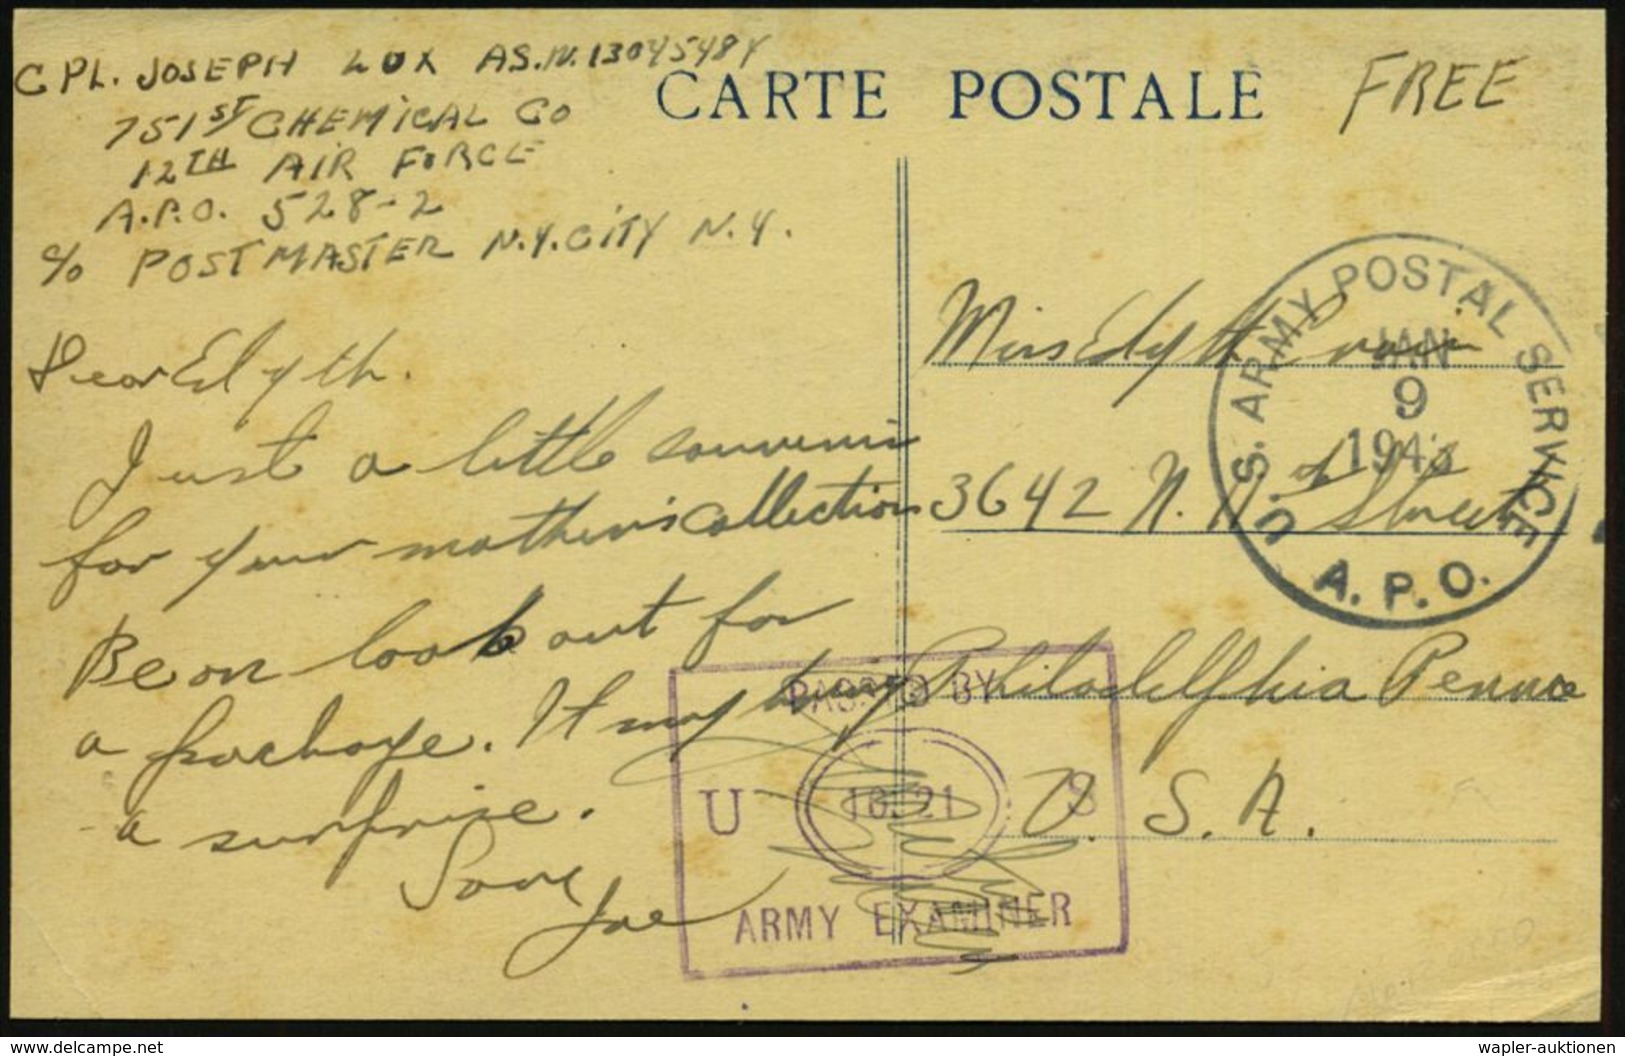 CPL. JOSEPH LUX AS.N. 13045484
751ST CHEMICAL CO
12TH AIR FORCE
A.P.O. 528-2
c/o POSTMASTER N.Y. CITY N.Y.
CARTE POSTALE
FREE
Dear Edyth.
Just a little souvenir
for your mother's collection
Be on look out for
a package. It may be
a surprise.
Love
Joe
U.S. ARMY POSTAL SERVICE
JAN
9
A.P.O.
Miss Edyth
3642 N. Street
Philadelphia Penna
U.S.A.
PASSED BY
U S
ARMY EXAMINER
www.delcampe.net
wapler-auktionen